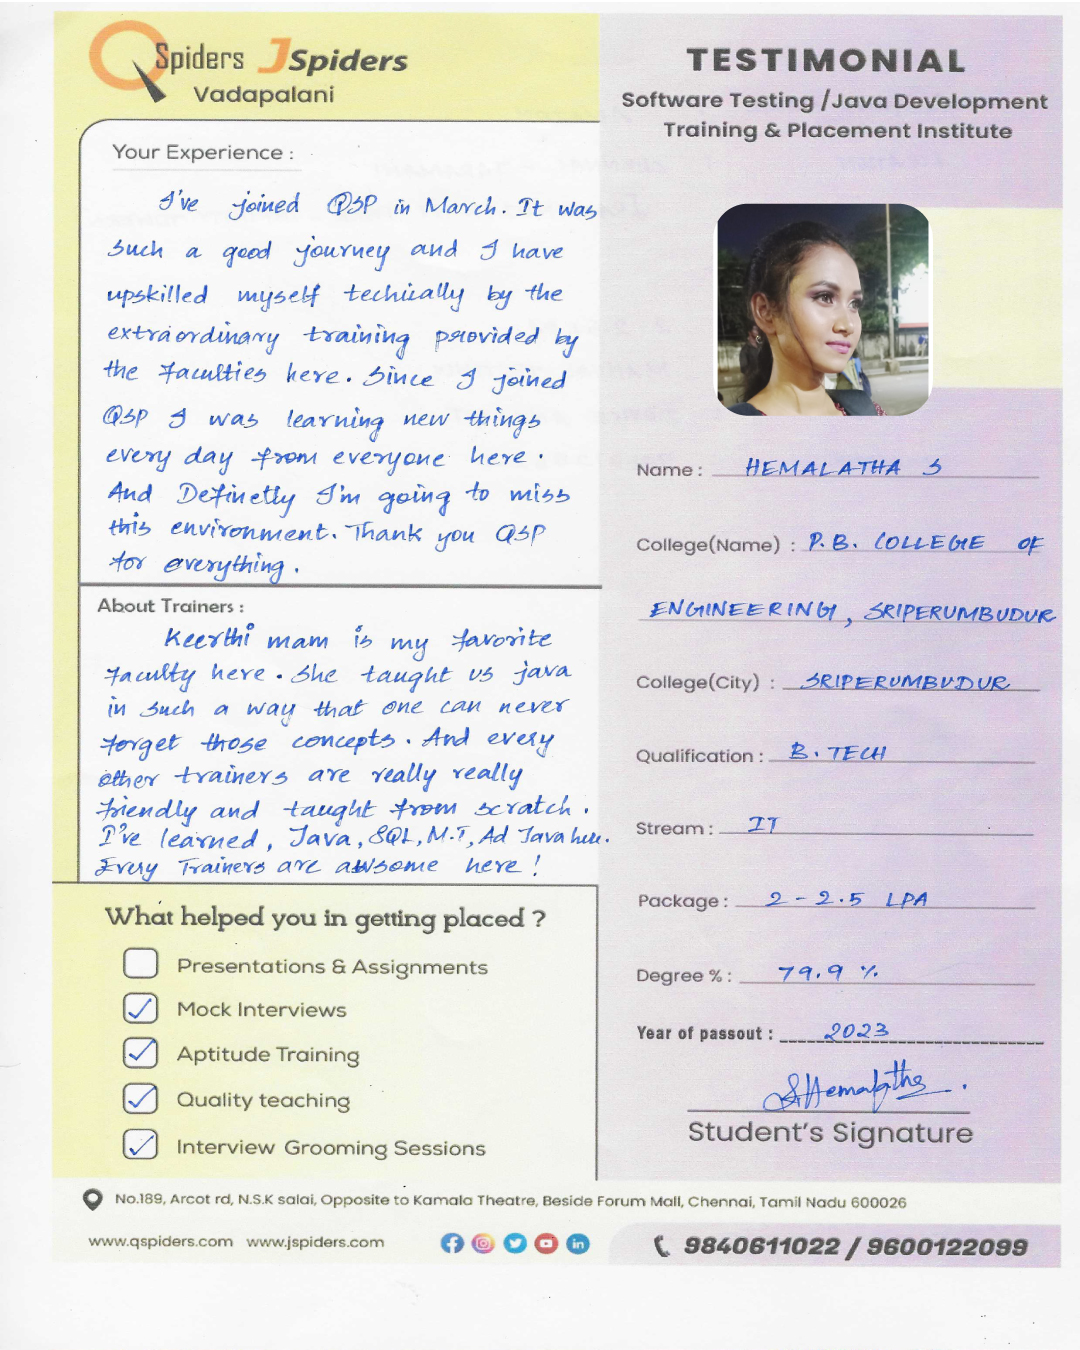 QSpiders JSpiders
Vadapalani
Your Experience :
I've joined QSP in March. It was
such a good journey and I have
upskilled myself techically by the
extraordinary training provided by
the Faculties here. Since I joined
QSP I was learning new things
every day from everyone here.
And Definetly I'm going to miss
this environment. Thank you QSP
for everything.
About Trainers :
Keerthi mam is my favorite
faculty here. She taught us java
in such a way that one can never
forget those concepts. And every
other trainers are really really
friendly and taught from scratch.
I've learned, Java, SQL, M.T, Ad Java here.
Every Trainers are awsome here!
What helped you in getting placed ?
Presentations & Assignments
Mock Interviews
Aptitude Training
Quality teaching
Interview Grooming Sessions
TESTIMONIAL
Software Testing /Java Development
Training & Placement Institute
Name : HEMALATHA S
College(Name) : P.B. COLLEGE OF
ENGINEERING, SRIPERUMBUDUR
College(City) : SRIPERUMBUDUR
Qualification : B.TECH
Stream : IT
Package : 2 - 2.5 LPA
Degree % : 79.9 %
Year of passout : 2023
S.Hemalatha.
Student's Signature
No.189, Arcot rd, N.S.K salai, Opposite to Kamala Theatre, Beside Forum Mall, Chennai, Tamil Nadu 600026
www.qspiders.com www.jspiders.com
9840611022 / 9600122099